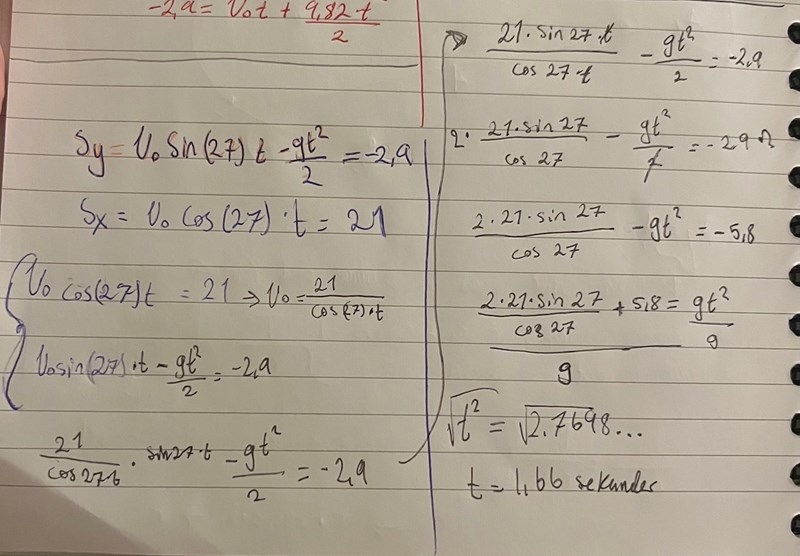 -2,9 = V₀t + 9,82t/2
Sy = V₀ Sin(27) t - gt²/2 = -2,9
Sx = V₀ cos(27) · t = 21
V₀ cos(27)t = 21 → V₀ = 21/cos(27)·t
V₀sin(27)·t - gt²/2 = -2,9
21/cos27t · sin27·t - gt²/2 = -2,9
21·sin27·t/cos27·t - gt²/2 = -2,9
2· 21·sin27/cos27 - gt²/2 = -2,9·2
2·21·sin27/cos27 - gt² = -5,8
(2·21·sin27/cos27 + 5,8)/g = gt²/g
√t² = √2.7698...
t = 1,66 sekunder